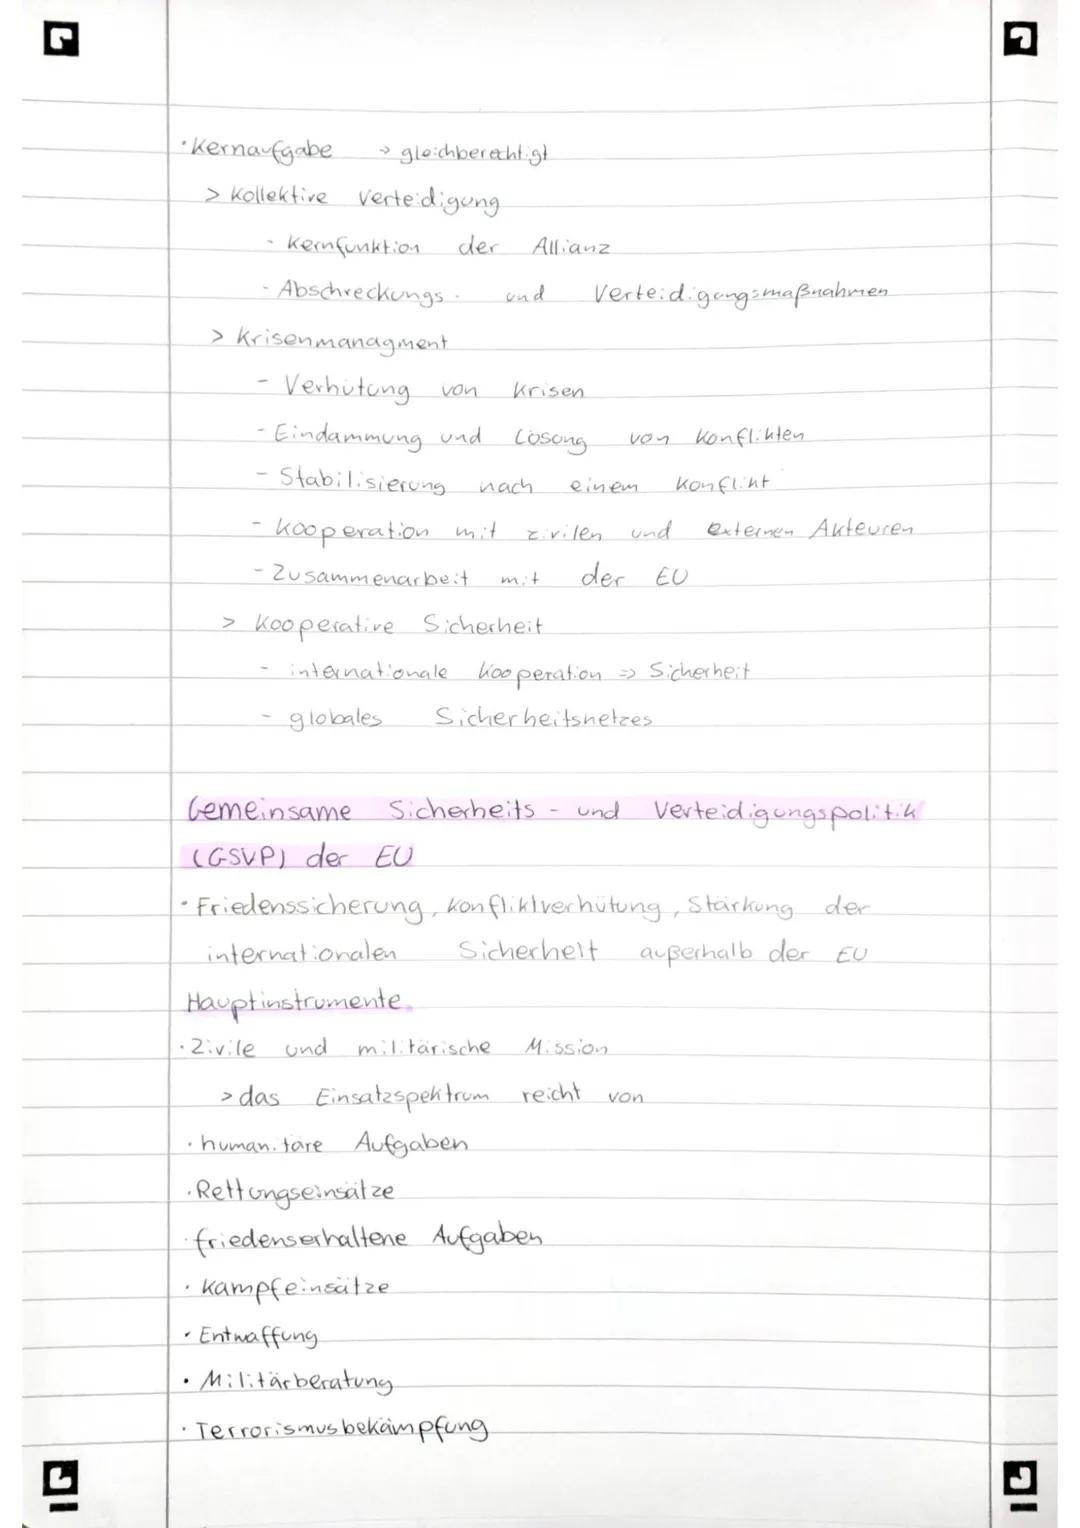 · Kernaufgabe → gleichberechtigt
> Kollektive Verteidigung
- Kernfunktion der Allianz
- Abschreckungs- und Verteidigungsmaßnahmen
> Krisenmanagment
- Verhütung von Krisen
- Eindammung und Lösung von Konflikten
- Stabilisierung nach einem Konflikt
- Kooperation mit zivilen und externen Akteuren
- Zusammenarbeit mit der EU
> Kooperative Sicherheit
- internationale Kooperation => Sicherheit
- globales Sicherheitsnetzes
Gemeinsame Sicherheits- und Verteidigungspolitik
(GSVP) der EU
· Friedenssicherung, Konfliktverhütung, Stärkung der
internationalen Sicherheit außerhalb der EU
Hauptinstrumente
· Zivile und militärische Mission
> das Einsatzspektrum reicht von
· humanitäre Aufgaben
· Rettungseinsätze
· friedenserhaltene Aufgaben
· Kampfeinsätze
· Entwaffung
· Militärberatung
· Terrorismusbekämpfung